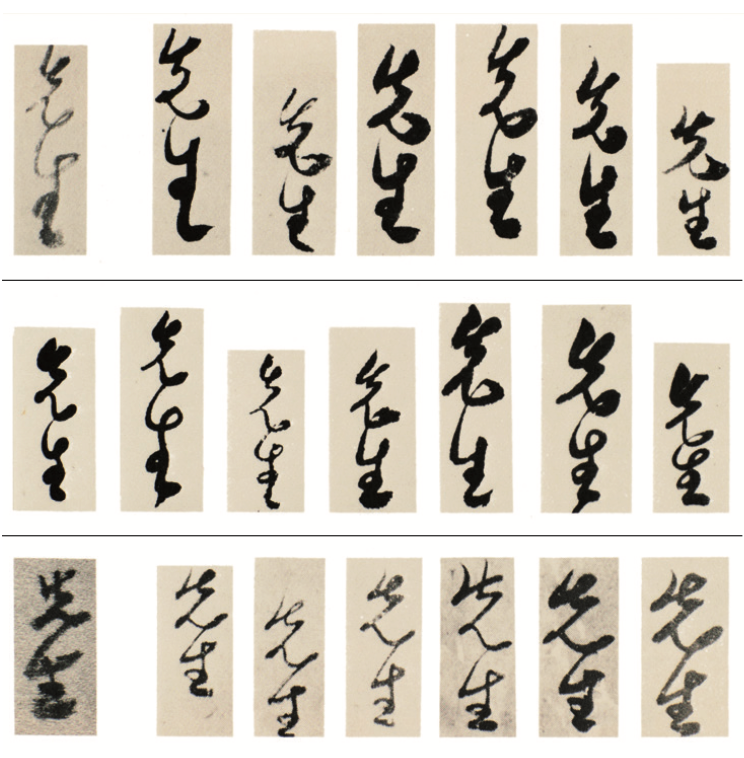 先生 先生 先生 先生 先生 先生 先生
先生 先生 先生 先生 先生 先生 先生
先生 先生 先生 先生 先生 先生 先生